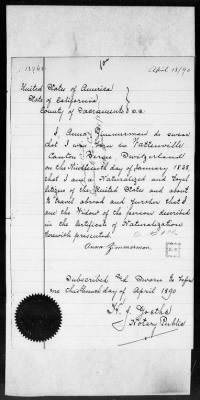 April 18/90
United States of America
State of California
County of Sacramento S.S.
I, Anna Zimmerman do swear
that I was born in Wattenville
Canton Berne Switzerland
on the Nineteenth day of January 1838
that I am a Naturalized and Loyal
Citizen of the United States and about
to travel abroad and further that I
am the Widow of the person described
in the Certificate of Naturalization
herewith presented.
Anna Zimmerman
Subscribed and Sworn to before
me this day of April 1890
H. J. Goethe
Notary Public